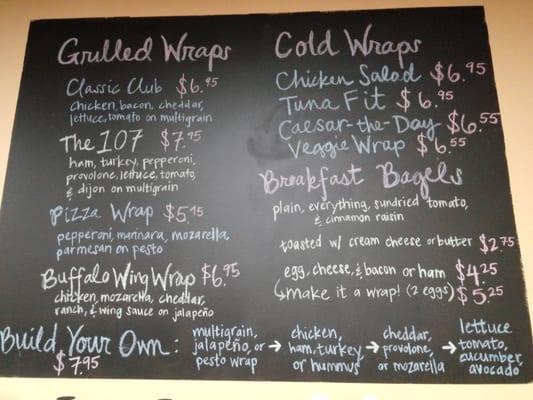 Grilled Wraps
Classic Club $6.95
chicken, bacon, cheddar,
lettuce, tomato on multigrain
The 107 $7.95
ham, turkey, pepperoni,
provolone, lettuce, tomato,
& dijon on multigrain
Pizza Wrap $5.95
pepperoni, marinara, mozarella,
parmesan on pesto
Buffalo Wing Wrap $6.95
chicken, mozarella, cheddar,
ranch, & wing sauce on jalapeño
Cold Wraps
Chicken Salad $6.95
Tuna Fit $6.95
Caesar-the-Day $6.55
Veggie Wrap $6.55
Breakfast Bagels
plain, everything, sundried tomato,
& cinnamon raisin
toasted w/ cream cheese or butter $2.75
egg, cheese, & bacon or ham $4.25
make it a wrap! (2 eggs) $5.25
Build Your Own:
$7.95
multigrain,
jalapeño, or
pesto wrap
→ chicken,
ham, turkey,
or hummus
→ cheddar,
provolone,
or mozarella
→ lettuce
tomato,
cucumber,
avocado